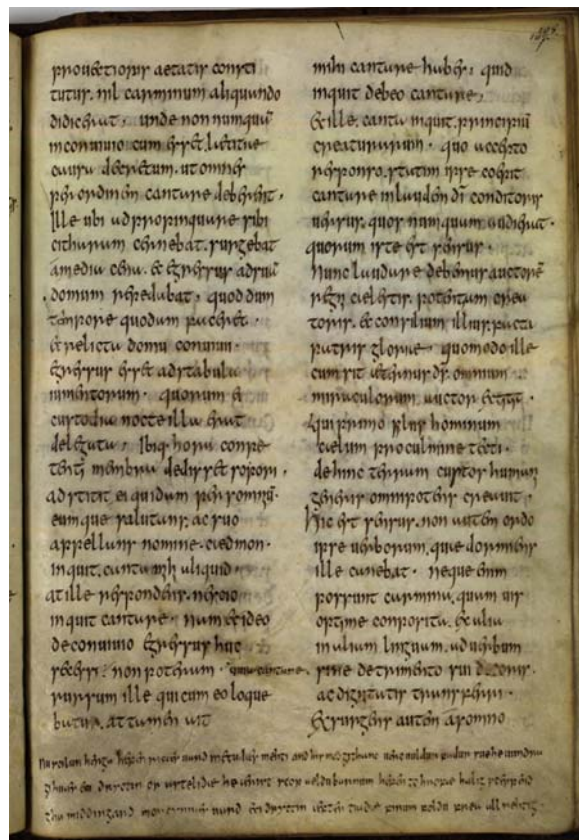 prouectioris aetatis consti
tutus. nil carminum aliquando
didicerat, unde non numquā
in conuiuio cum esset laetitiae
causa decretum. ut omnes
per ordinem cantare deberent,
ille ubi adpropinquare sibi
citharam cernebat. surgebat
a media cena. et egressus ad suā
domum repedabat, quod dum
tempore quodam faceret.
et relicta domu conuiuii.
egressus esset ad stabula
iumentorum. quorum ei
custodia nocte illa erat
delegata, ibiq hora conpe
tenti membra dedisset sopori.
adstitit ei quidam per somniū.
eumque salutans. ac suo
appellans nomine. caedmon.
inquit. canta mihi aliquid.
at ille respondens. nescio
inquit cantare. nam et ideo
de conuiuio egressus huc
secessi: non poteram. quia cantare
rursum ille qui cum eo loque
batur. attamen ait
149
mihi cantare habes, quid
inquit debeo cantare,
et ille. canta inquit. principiū
creaturarum. quo accepto
responso. statim ipse coepit
cantare in laudem dī conditoris
uersus. quos numquam audierat.
quorum iste est sensus.
Nunc laudare debemus auctorē
regni caelestis. potentiam crea
toris. et consilium illius. facta
patris gloriae. quomodo ille
cum sit aeternus dš. omnium
miraculorum. auctor extitit.
qui primo filiis hominum
caelum pro culmine tecti.
dehinc terram custos humani
generis omnipotens creauit.
hic est sensus. non autem ordo
ipse uerborum. quae dormiens
ille canebat. neque enim
possunt carmina. quam uis
optime conposita. ex alia
in aliam linguam. ad uerbum
sine detrimento sui decoris.
ac dignitatis transferri.
Exsurgens autem a somno
Nu scilun herga hefen ricæs uard metudæs mehti and his modgithanc uerc uuldur fadur sue he uundra
gihuæs eci dryctin or astelidæ he ærist scop ældu barnum hefen to hrofæ halig sceppend
tha middingard moncynnæs uard eci dryctin æfter tiadæ firum foldu frea allmehtig.